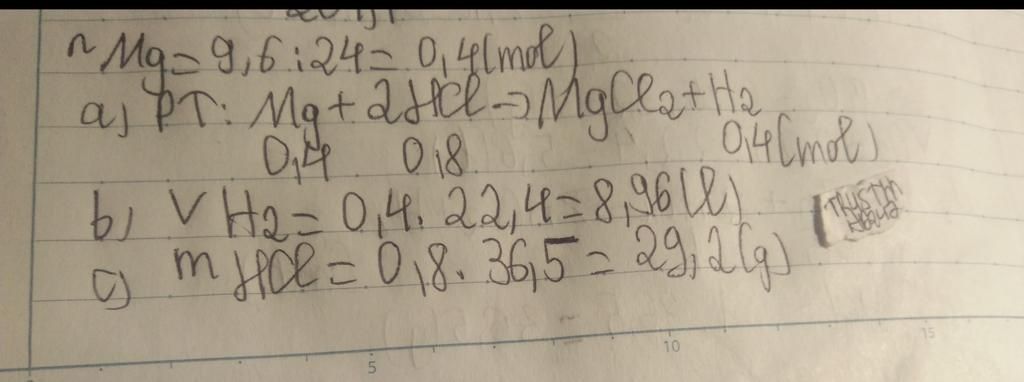 nMg = 9,6 : 24 = 0,4 (mol)
a) PT: Mg + 2HCl → MgCl2 + H2
0,4 0,8 0,4 (mol)
b) V H2 = 0,4 . 22,4 = 8,96 (l)
c) m HCl = 0,8 . 36,5 = 29,2 (g)
5 10 15